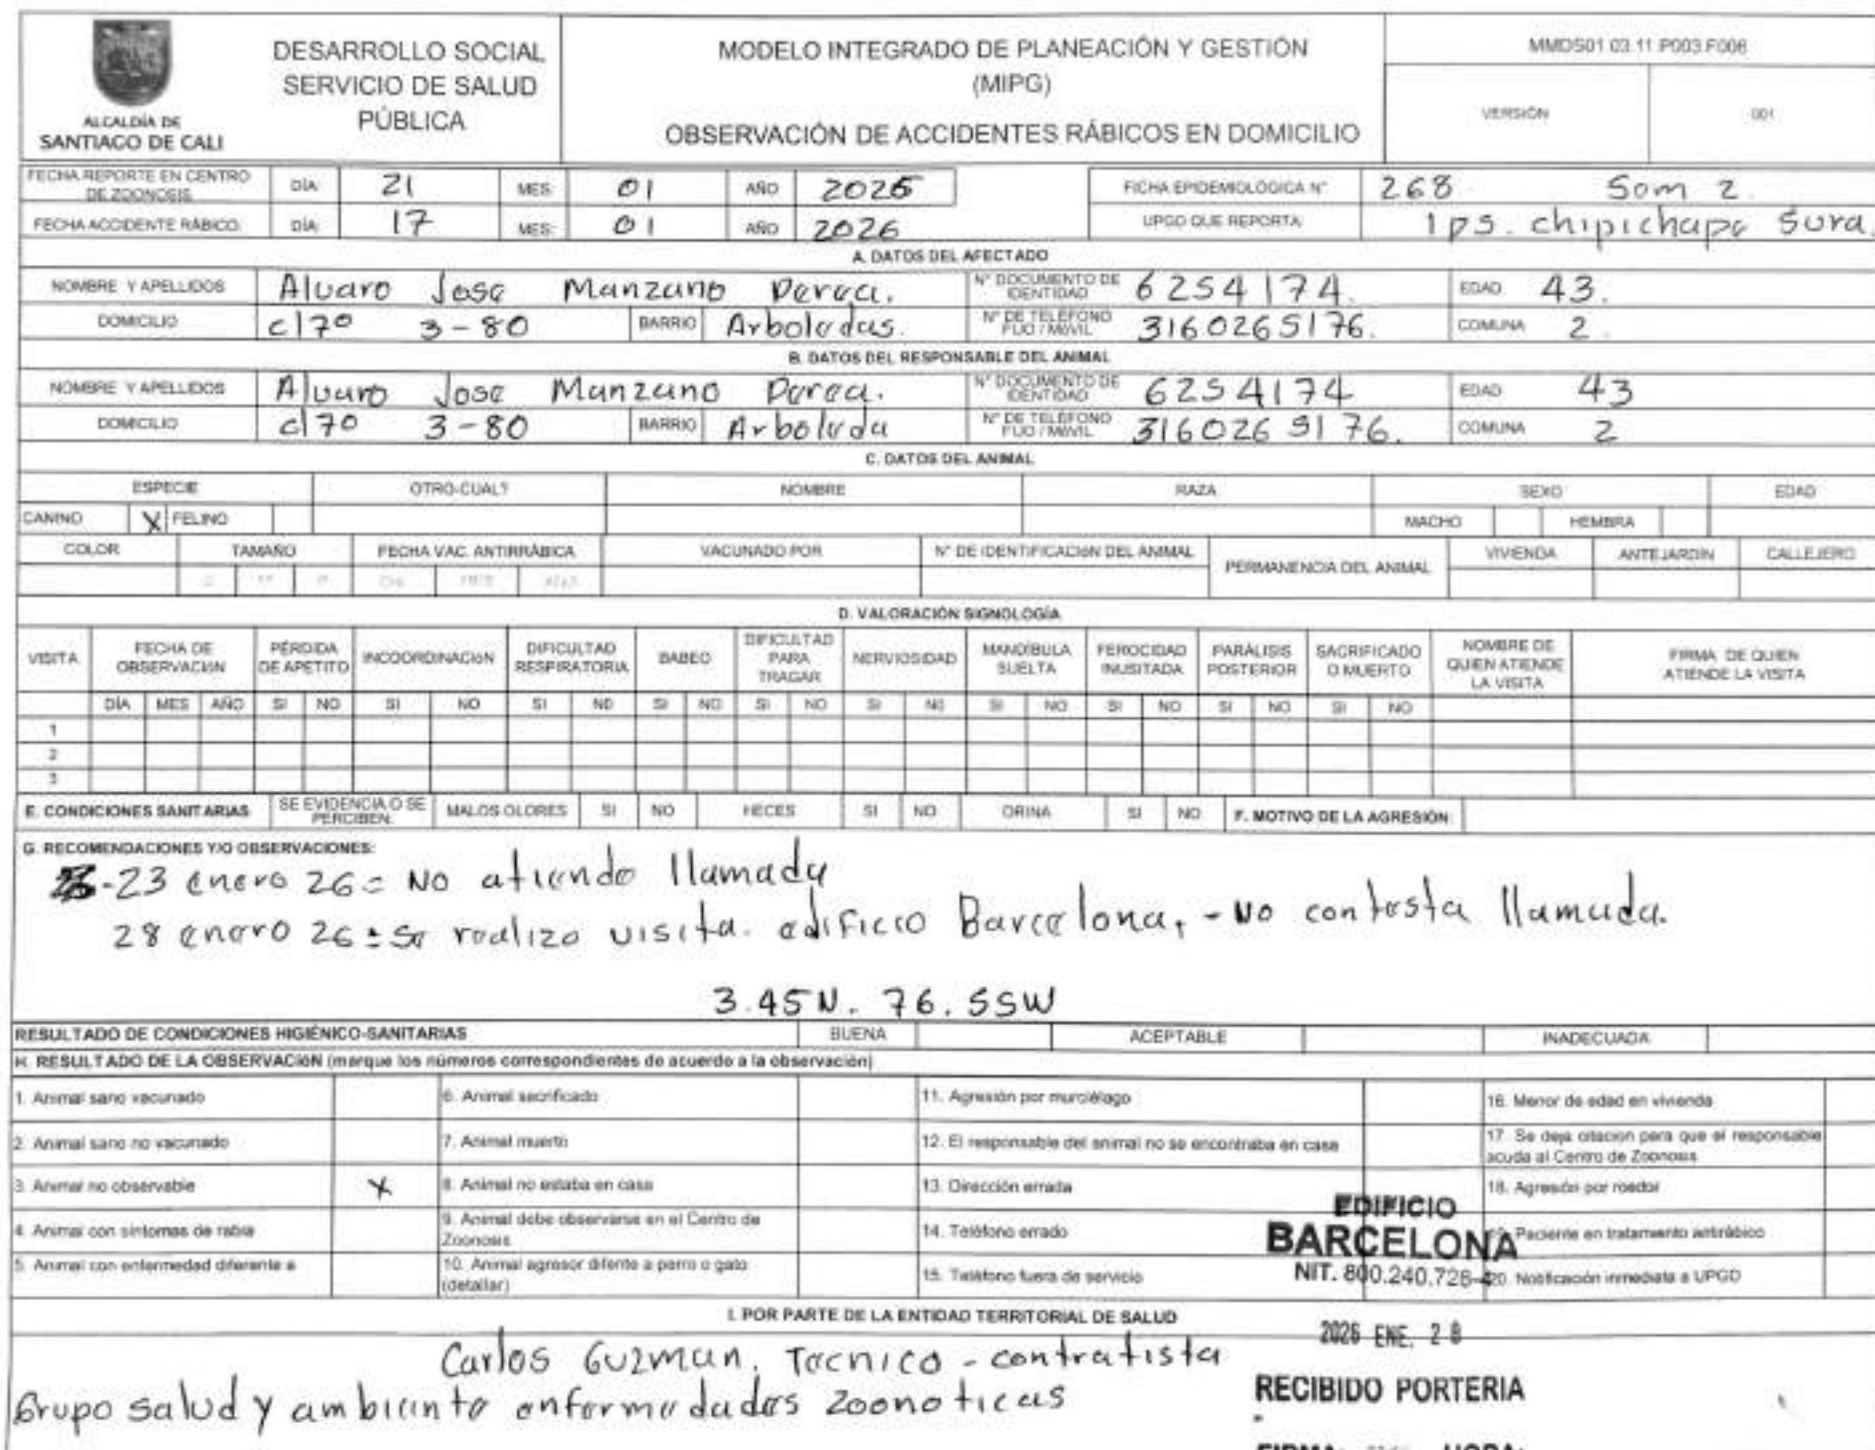 ALCALDÍA DE
SANTIAGO DE CALI
DESARROLLO SOCIAL
SERVICIO DE SALUD
PÚBLICA
MODELO INTEGRADO DE PLANEACIÓN Y GESTIÓN
(MIPG)
OBSERVACIÓN DE ACCIDENTES RÁBICOS EN DOMICILIO
MMDS01.03.11.P003.F006
VERSIÓN 001
FECHA REPORTE EN CENTRO DE ZOONOSIS DÍA: 21 MES: 01 AÑO 2026 FICHA EPIDEMIOLÓGICA N° 268 Som 2.
FECHA ACCIDENTE RÁBICO: DÍA: 17 MES: 01 AÑO 2026 UPGD QUE REPORTA: IPS. chipichape Sura.
A. DATOS DEL AFECTADO
NOMBRE Y APELLIDOS Alvaro Jose Manzano Perea. N° DOCUMENTO DE IDENTIDAD 6254174. EDAD 43.
DOMICILIO cl7º 3-80 BARRIO Arboledas. N° DE TELÉFONO FIJO / MÓVIL 3160265176. COMUNA 2.
B. DATOS DEL RESPONSABLE DEL ANIMAL
NOMBRE Y APELLIDOS Alvaro Jose Manzano Perea. N° DOCUMENTO DE IDENTIDAD 6254174 EDAD 43
DOMICILIO cl7º 3-80 BARRIO Arboleda N° DE TELÉFONO FIJO / MÓVIL 3160265176. COMUNA 2
C. DATOS DEL ANIMAL
ESPECIE OTRO-CUAL? NOMBRE RAZA SEXO EDAD
CANINO X FELINO MACHO HEMBRA
COLOR TAMAÑO FECHA VAC. ANTIRRÁBICA VACUNADO POR N° DE IDENTIFICACIóN DEL ANIMAL PERMANENCIA DEL ANIMAL VIVIENDA ANTEJARDÍN CALLEJERO
D. VALORACIÓN SIGNOLOGÍA
VISITA FECHA DE OBSERVACIóN PÉRDIDA DE APETITO INCOORDINACIóN DIFICULTAD RESPIRATORIA BABEO DIFICULTAD PARA TRAGAR NERVIOSIDAD MANDÍBULA SUELTA FEROCIDAD INUSITADA PARÁLISIS POSTERIOR SACRIFICADO O MUERTO NOMBRE DE QUIEN ATIENDE LA VISITA FIRMA DE QUIEN ATIENDE LA VISITA
DÍA MES AÑO SI NO SI NO SI NO SI NO SI NO SI NO SI NO SI NO SI NO SI NO
1
2
3
E. CONDICIONES SANITARIAS SE EVIDENCIA O SE PERCIBEN: MALOS OLORES SI NO HECES SI NO ORINA SI NO F. MOTIVO DE LA AGRESIÓN:
G. RECOMENDACIONES Y/O OBSERVACIONES:
-23 enero 26 = No atiende llamada
28 enero 26 = se realizo visita. edificio Barcelona, - No contesta llamada.
3.45N. 76.55W
RESULTADO DE CONDICIONES HIGIÉNICO-SANITARIAS BUENA ACEPTABLE INADECUADA
H. RESULTADO DE LA OBSERVACIóN (marque los números correspondientes de acuerdo a la observación)
1. Animal sano vacunado 6. Animal sacrificado 11. Agresión por murciélago 16. Menor de edad en vivienda
2. Animal sano no vacunado 7. Animal muerto 12. El responsable del animal no se encontraba en casa 17. Se deja citacion para que el responsable acuda al Centro de Zoonosis
3. Animal no observable X 8. Animal no estaba en casa 13. Dirección errada 18. Agresión por roedor
4. Animal con síntomas de rabia 9. Animal debe observarse en el Centro de Zoonosis 14. Teléfono errado 19. Paciente en tratamiento antirábico
5. Animal con enfermedad diferente a 10. Animal agresor difente a perro o gato (detallar) 15. Teléfono fuera de servicio 20. Notificación inmediata a UPGD
EDIFICIO
BARCELONA
NIT. 800.240.728-4
I. POR PARTE DE LA ENTIDAD TERRITORIAL DE SALUD
2026 ENE. 28
Carlos Guzman. Tecnico - contratista
RECIBIDO PORTERIA
Grupo salud y ambiente enfermedades zoonoticas
FIRMA: HORA: